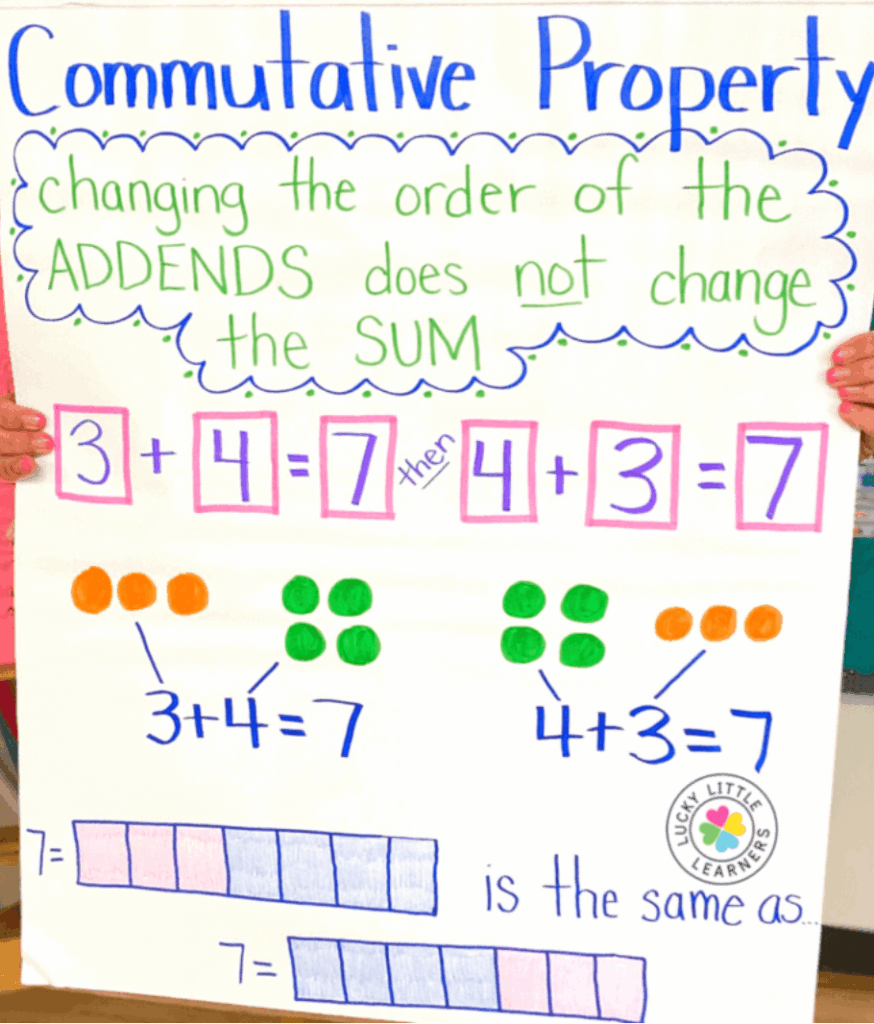 Commutative Property
changing the order of the
ADDENDS does not change
the SUM
3 + 4 = 7 then 4 + 3 = 7
3+4=7
4+3=7
LUCKY LITTLE LEARNERS
7=
is the same as...
7=